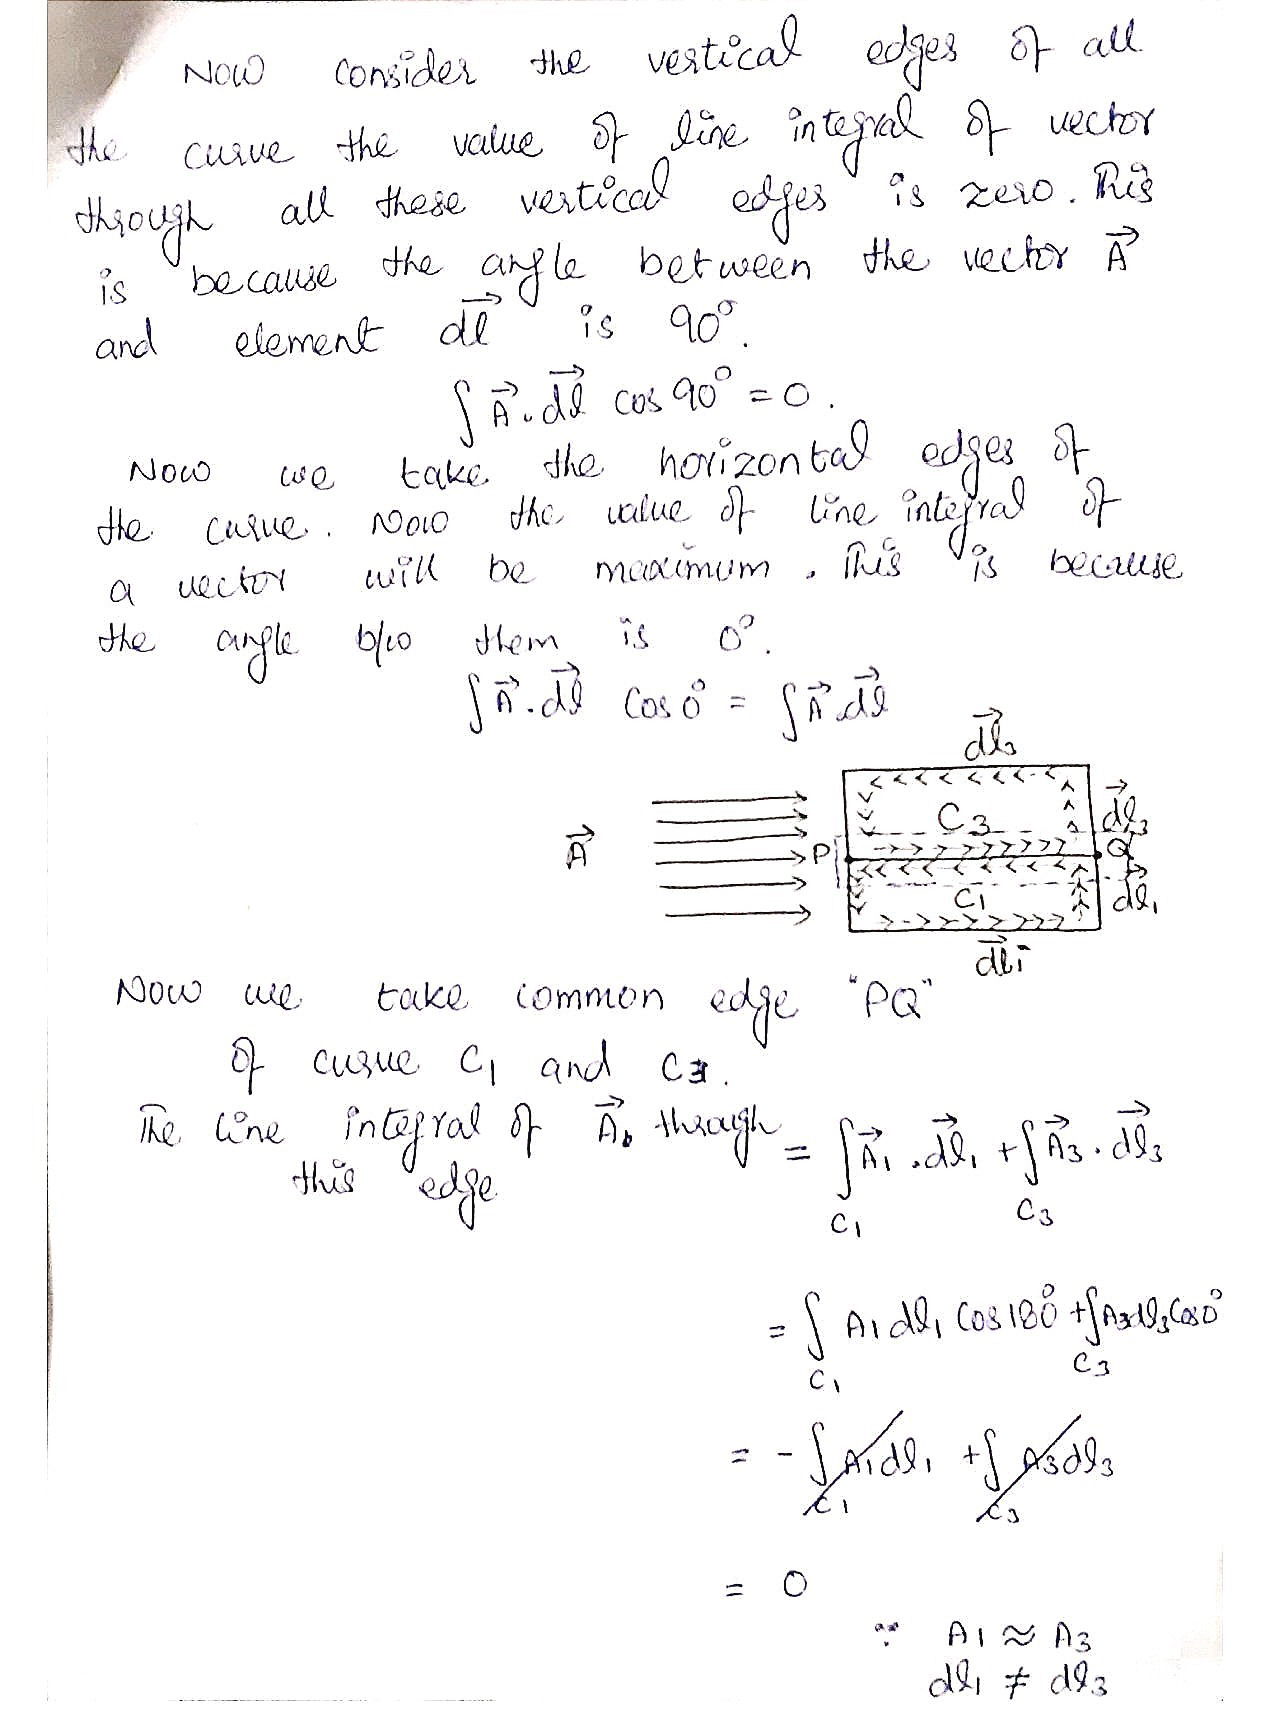 Now consider the vertical edges of all
the curve the value of line integral of vector
through all these vertical edges is zero. This
is because the angle between the vector A⃗
and element dl⃗ is 90°.
∫ A⃗ . dl⃗ cos 90° = 0 .
Now we take the horizontal edges of
the curve. Now the value of line integral of
a vector will be maximum . This is because
the angle b/w them is 0°.
∫ A⃗ . dl⃗ Cos 0° = ∫ A⃗ . dl⃗
dl⃗₃
A⃗ P C3 dl⃗₃ Q
C1 dl⃗₁
dl⃗₁
Now we take common edge "PQ"
of curve C1 and C3.
The line integral of A⃗, through this edge = ∫C1 A⃗₁ . dl⃗₁ + ∫C3 A⃗₃ . dl⃗₃
= ∫C1 A₁ dl₁ Cos 180° + ∫C3 A₃dl₃ Cos 0°
= - ∫C1 A₁dl₁ + ∫C3 A₃dl₃
= 0
∵ A₁ ≈ A₃
dl₁ ≠ dl₃